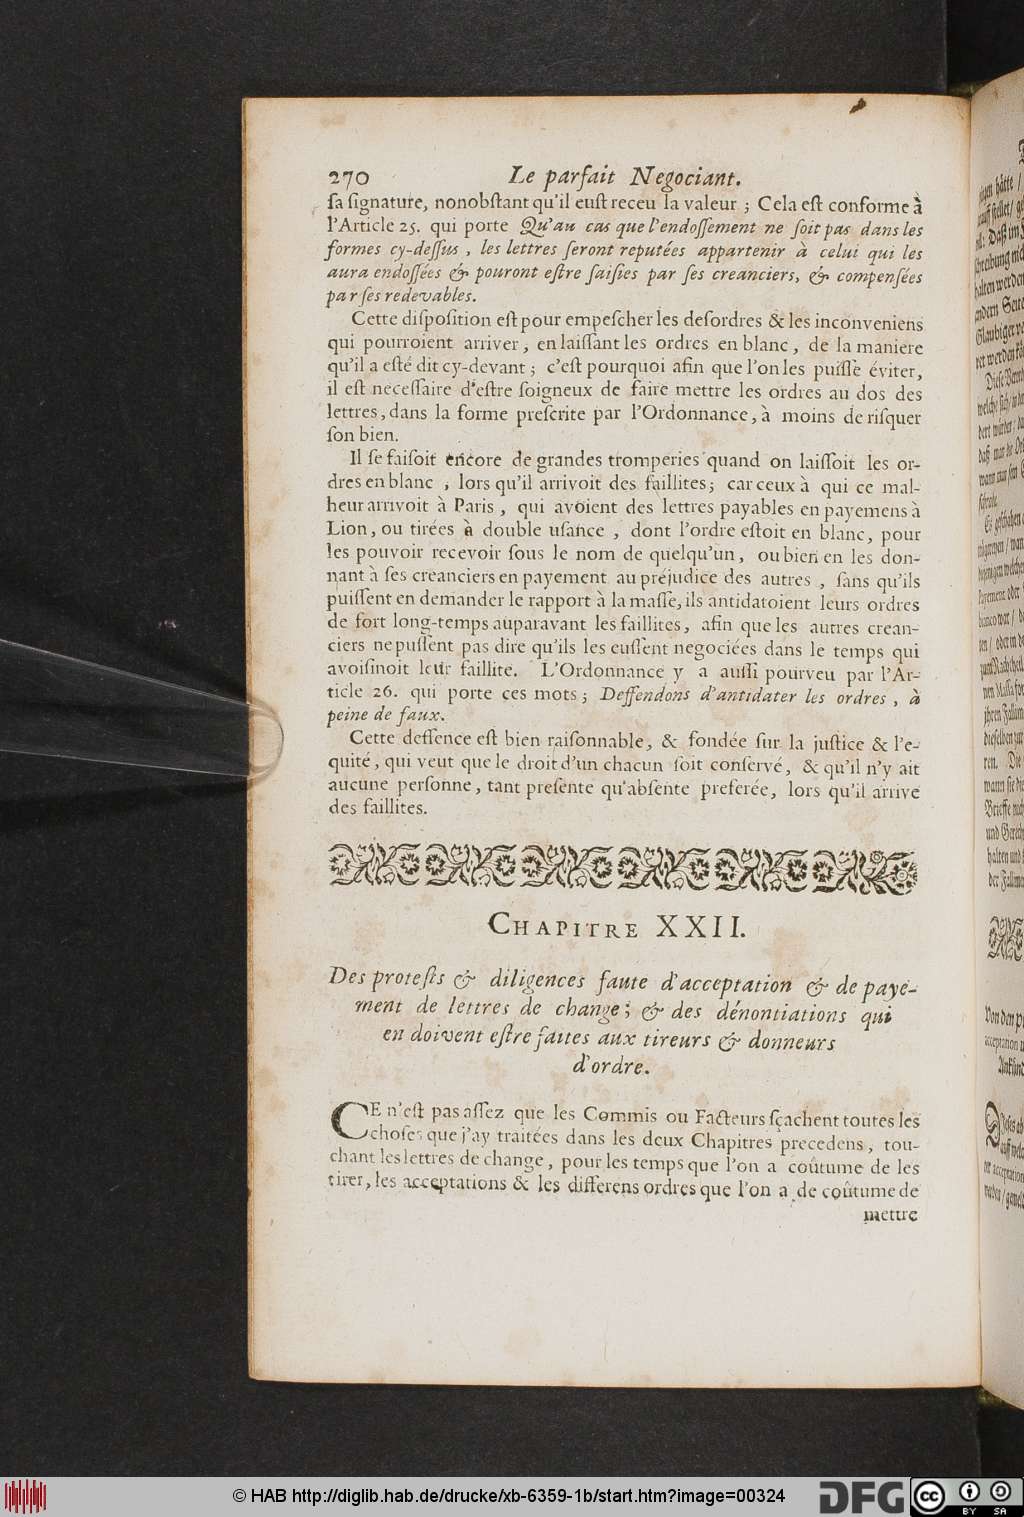 270 Le parfait Negociant.
sa signature, nonobstant qu'il eust receu la valeur ; Cela est conforme à
l'Article 25. qui porte Qu'au cas que l'endossement ne soit pas dans les
formes cy-dessus , les lettres seront reputées appartenir à celui qui les
aura endossées & pouront estre saisies par ses creanciers, & compensées
par ses redevables.
Cette disposition est pour empescher les desordres & les inconveniens
qui pourroient arriver, en laissant les ordres en blanc, de la maniere
qu'il a esté dit cy-devant ; c'est pourquoi afin que l'on les puisse éviter,
il est necessaire d'estre soigneux de faire mettre les ordres au dos des
lettres, dans la forme prescrite par l'Ordonnance, à moins de risquer
son bien.
Il se faisoit encore de grandes tromperies quand on laissoit les or-
dres en blanc , lors qu'il arrivoit des faillites; car ceux à qui ce mal-
heur arrivoit à Paris , qui avoient des lettres payables en payemens à
Lion, ou tirées à double usance , dont l'ordre estoit en blanc, pour
les pouvoir recevoir sous le nom de quelqu'un, ou bien en les don-
nant à ses creanciers en payement au préjudice des autres , sans qu'ils
puissent en demander le rapport à la masse, ils antidatoient leurs ordres
de fort long-temps auparavant les faillites, afin que les autres crean-
ciers ne pussent pas dire qu'ils les eussent negociées dans le temps qui
avoisinoit leur faillite. L'Ordonnance y a aussi pourveu par l'Ar-
ticle 26. qui porte ces mots ; Deffendons d'antidater les ordres , à
peine de faux.
Cette deffence est bien raisonnable, & fondée sur la justice & l'e-
quité, qui veut que le droit d'un chacun soit conservé, & qu'il n'y ait
aucune personne, tant presente qu'absente preferée, lors qu'il arrive
des faillites.
CHAPITRE XXII.
Des protests & diligences faute d'acceptation & de paye-
ment de lettres de change; & des dénontiations qui
en doivent estre faites aux tireurs & donneurs
d'ordre.
CE n'est pas assez que les Commis ou Facteurs sçachent toutes les
choses que j'ay traitées dans les deux Chapitres precedens, tou-
chant les lettres de change, pour les temps que l'on a coûtume de les
tirer, les acceptations & les differens ordres que l'on a de coûtume de
mettre
© HAB http://diglib.hab.de/drucke/xb-6359-1b/start.htm?image=00324
DFG
cc BY SA